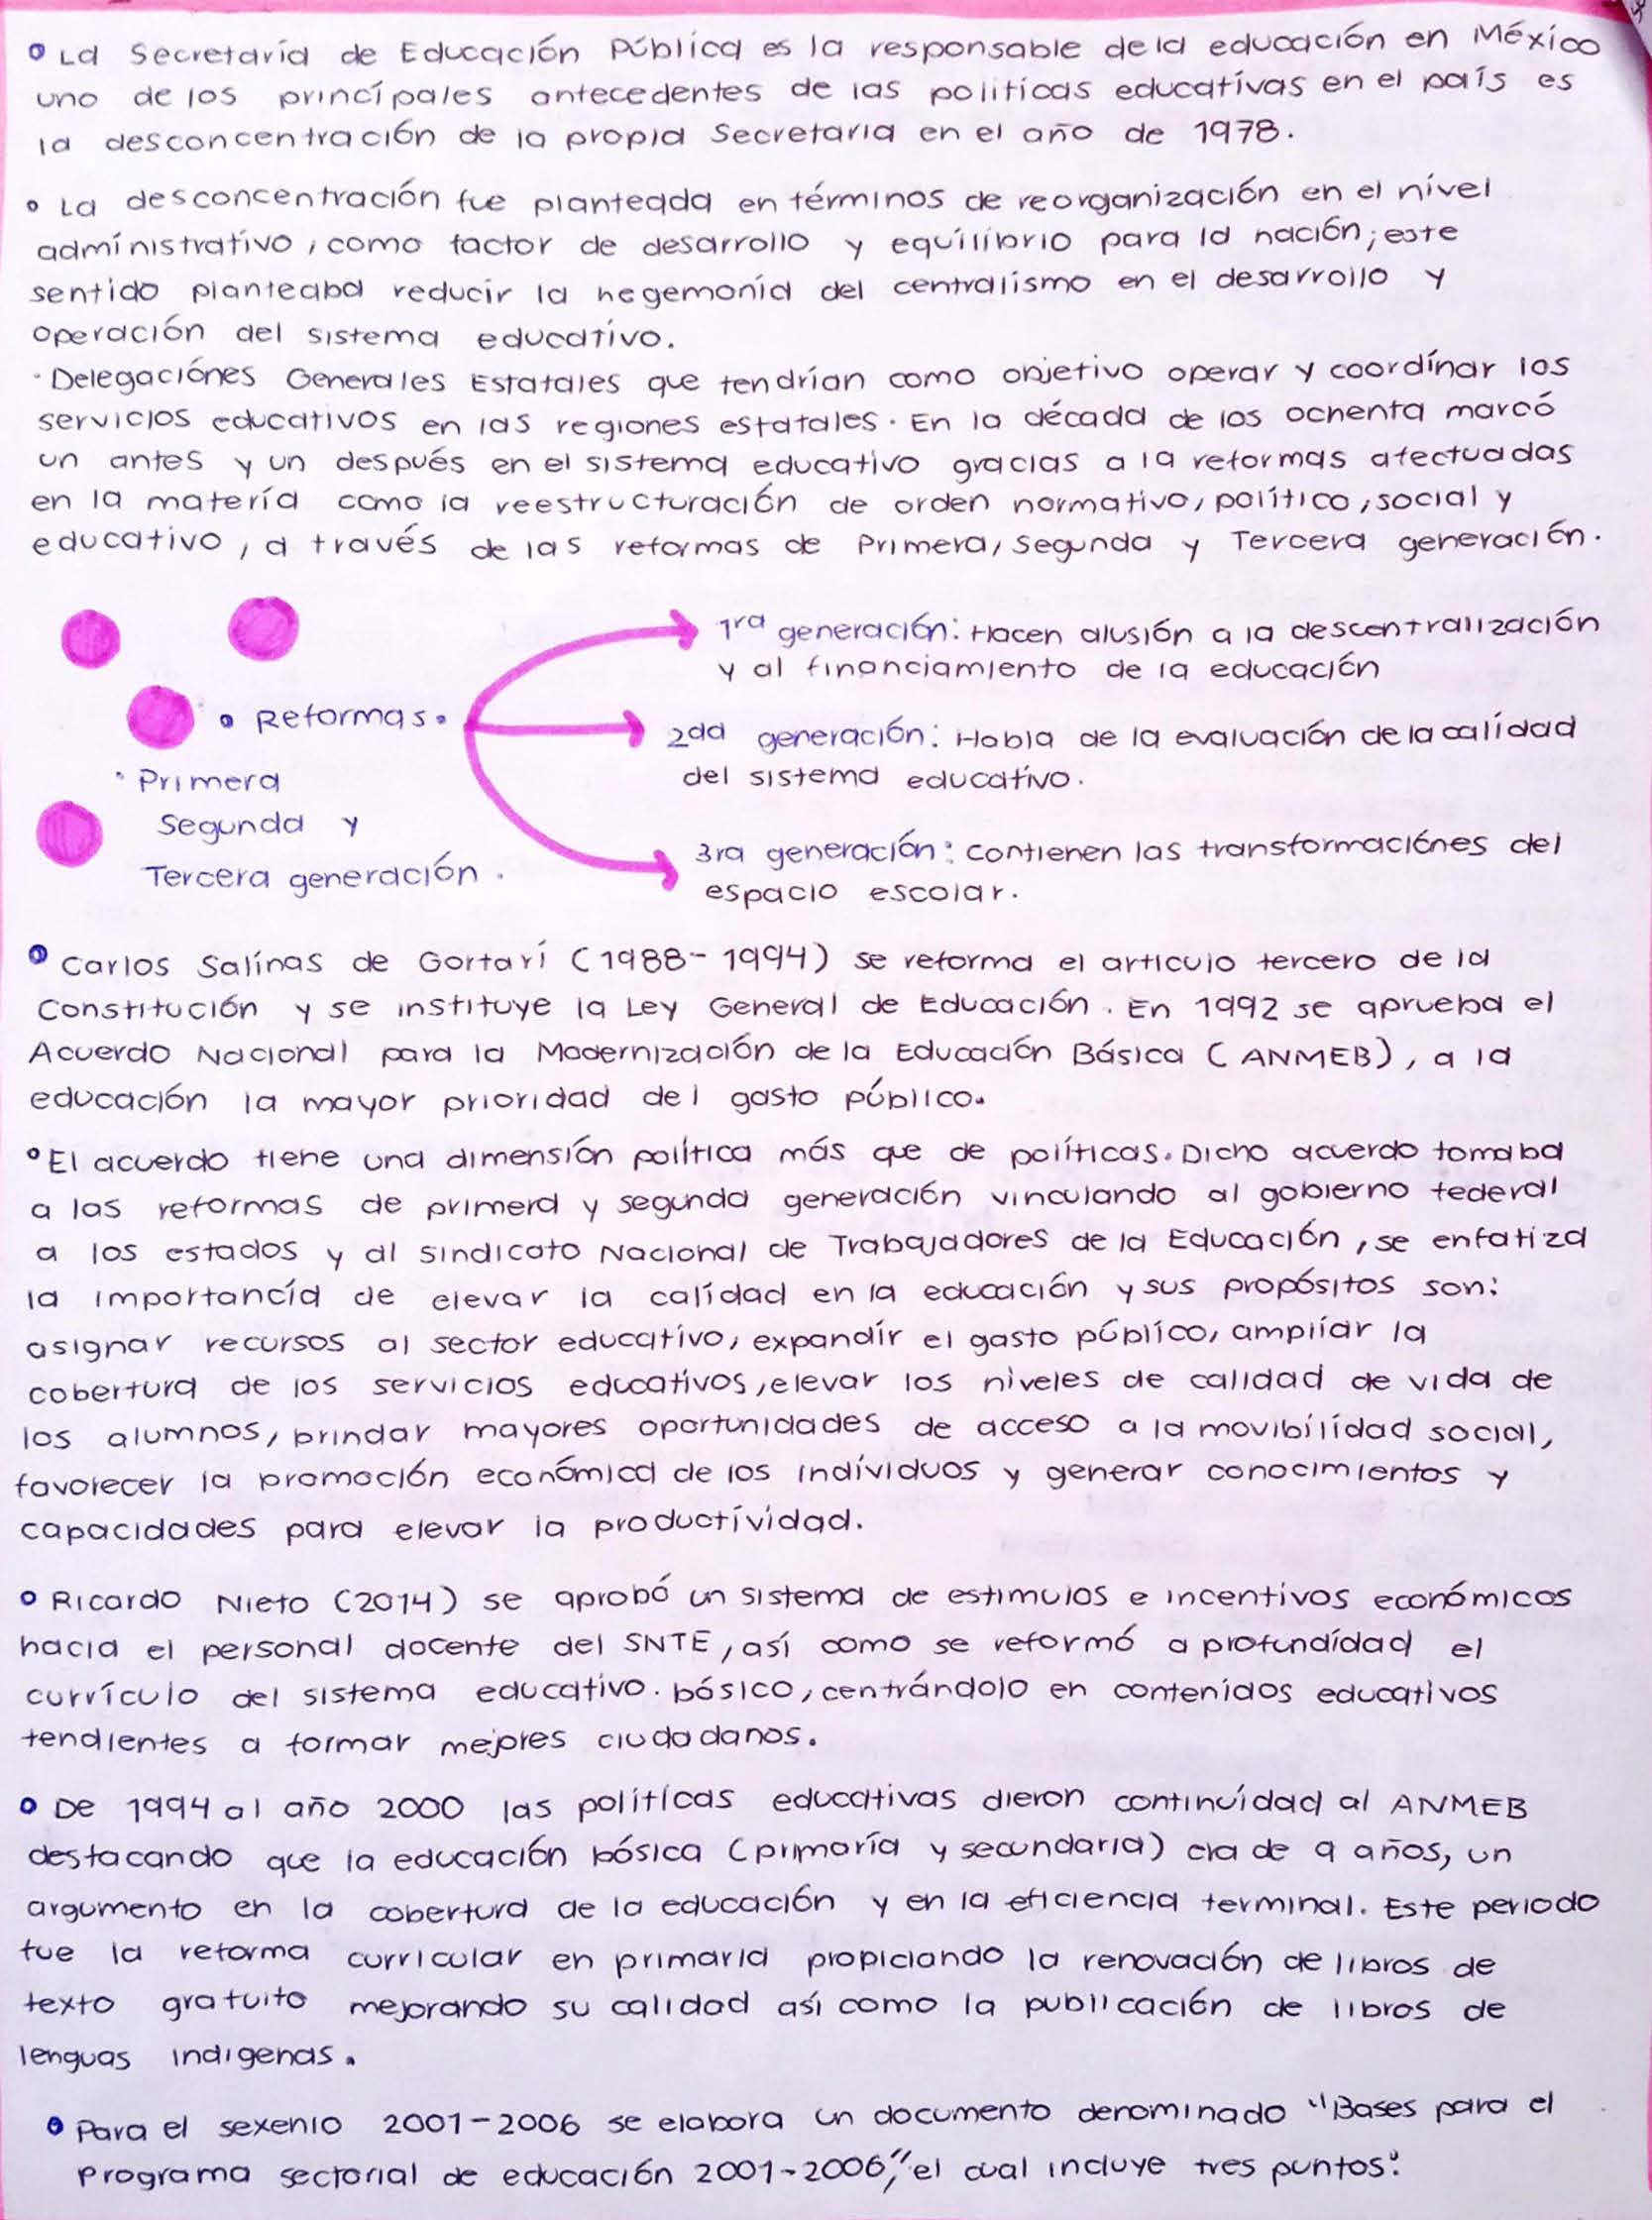 La Secretaría de Educación Pública es la responsable de la educación en México
uno de los principales antecedentes de las politicas educativas en el país es
la desconcentración de la propia Secretaria en el año de 1978.
La desconcentración fue planteada en términos de reorganización en el nivel
administrativo, como factor de desarrollo y equilibrio para la nación; este
sentido planteaba reducir la hegemonía del centralismo en el desarrollo y
operación del sistema educativo.
Delegaciónes Generales Estatales que tendrían como objetivo operar y coordinar los
servicios educativos en las regiones estatales. En la década de los ochenta marcó
un antes y un después en el sistema educativo gracias a la reformas afectuadas
en la materia como la reestructuración de orden normativo, político, social y
educativo, a través de las reformas de Primera, Segunda y Tercera generación.
1ra generación: Hacen alusión a la descentralización
y al financiamiento de la educación
• Reformas.
2da generación: Habla de la evaluación de la calidad
del sistema educativo.
• Primera
Segunda y
Tercera generación.
3ra generación: contienen las transformaciónes del
espacio escolar.
Carlos Salinas de Gortari (1988-1994) se reforma el articulo tercero de la
Constitución y se instituye la Ley General de Educación. En 1992 se aprueba el
Acuerdo Nacional para la Modernización de la Educación Básica (ANMEB), a la
educación la mayor prioridad del gasto público.
El acuerdo tiene una dimensión política más que de políticas. Dicho acuerdo tomaba
a las reformas de primera y segunda generación vinculando al gobierno federal
a los estados y al Sindicato Nacional de Trabajadores de la Educación, se enfatiza
la importancia de elevar la calidad en la educación y sus propósitos son:
asignar recursos al sector educativo, expandir el gasto público, ampliar la
cobertura de los servicios educativos, elevar los niveles de calidad de vida de
los alumnos, brindar mayores oportunidades de acceso a la movibilidad social,
favorecer la promoción económica de los individuos y generar conocimientos y
capacidades para elevar la productividad.
Ricardo Nieto (2014) se aprobó un sistema de estimulos e incentivos económicos
hacia el personal docente del SNTE, así como se reformó a profundidad el
currículo del sistema educativo. básico, centrándolo en contenidos educativos
tendientes a formar mejores ciudadanos.
De 1994 al año 2000 las políticas educativas dieron continuidad al ANMEB
destacando que la educación básica (primaria y secundaria) era de 9 años, un
argumento en la cobertura de la educación y en la eficiencia terminal. Este periodo
fue la reforma curricular en primaria propiciando la renovación de libros de
texto gratuito mejorando su calidad así como la publicación de libros de
lenguas indigenas.
Para el sexenio 2001-2006 se elabora un documento denominado "Bases para el
Programa sectorial de educación 2001-2006", el cual incluye tres puntos: